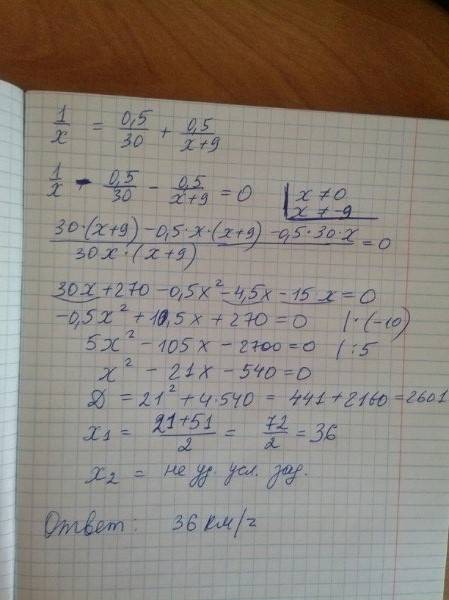 1/x = 0,5/30 + 0,5/(x+9)
1/x - 0,5/30 - 0,5/(x+9) = 0 | x ≠ 0
x ≠ -9
(30·(x+9) - 0,5·x·(x+9) - 0,5·30·x)/(30x·(x+9)) = 0
30x + 270 - 0,5x² - 4,5x - 15x = 0
-0,5x² + 10,5x + 270 = 0 |·(-10)
5x² - 105x - 2700 = 0 |:5
x² - 21x - 540 = 0
D = 21² + 4·540 = 441 + 2160 = 2601
x₁ = (21+51)/2 = 72/2 = 36
x₂ = не уд. усл. зад.
Ответ: 36 км/ч